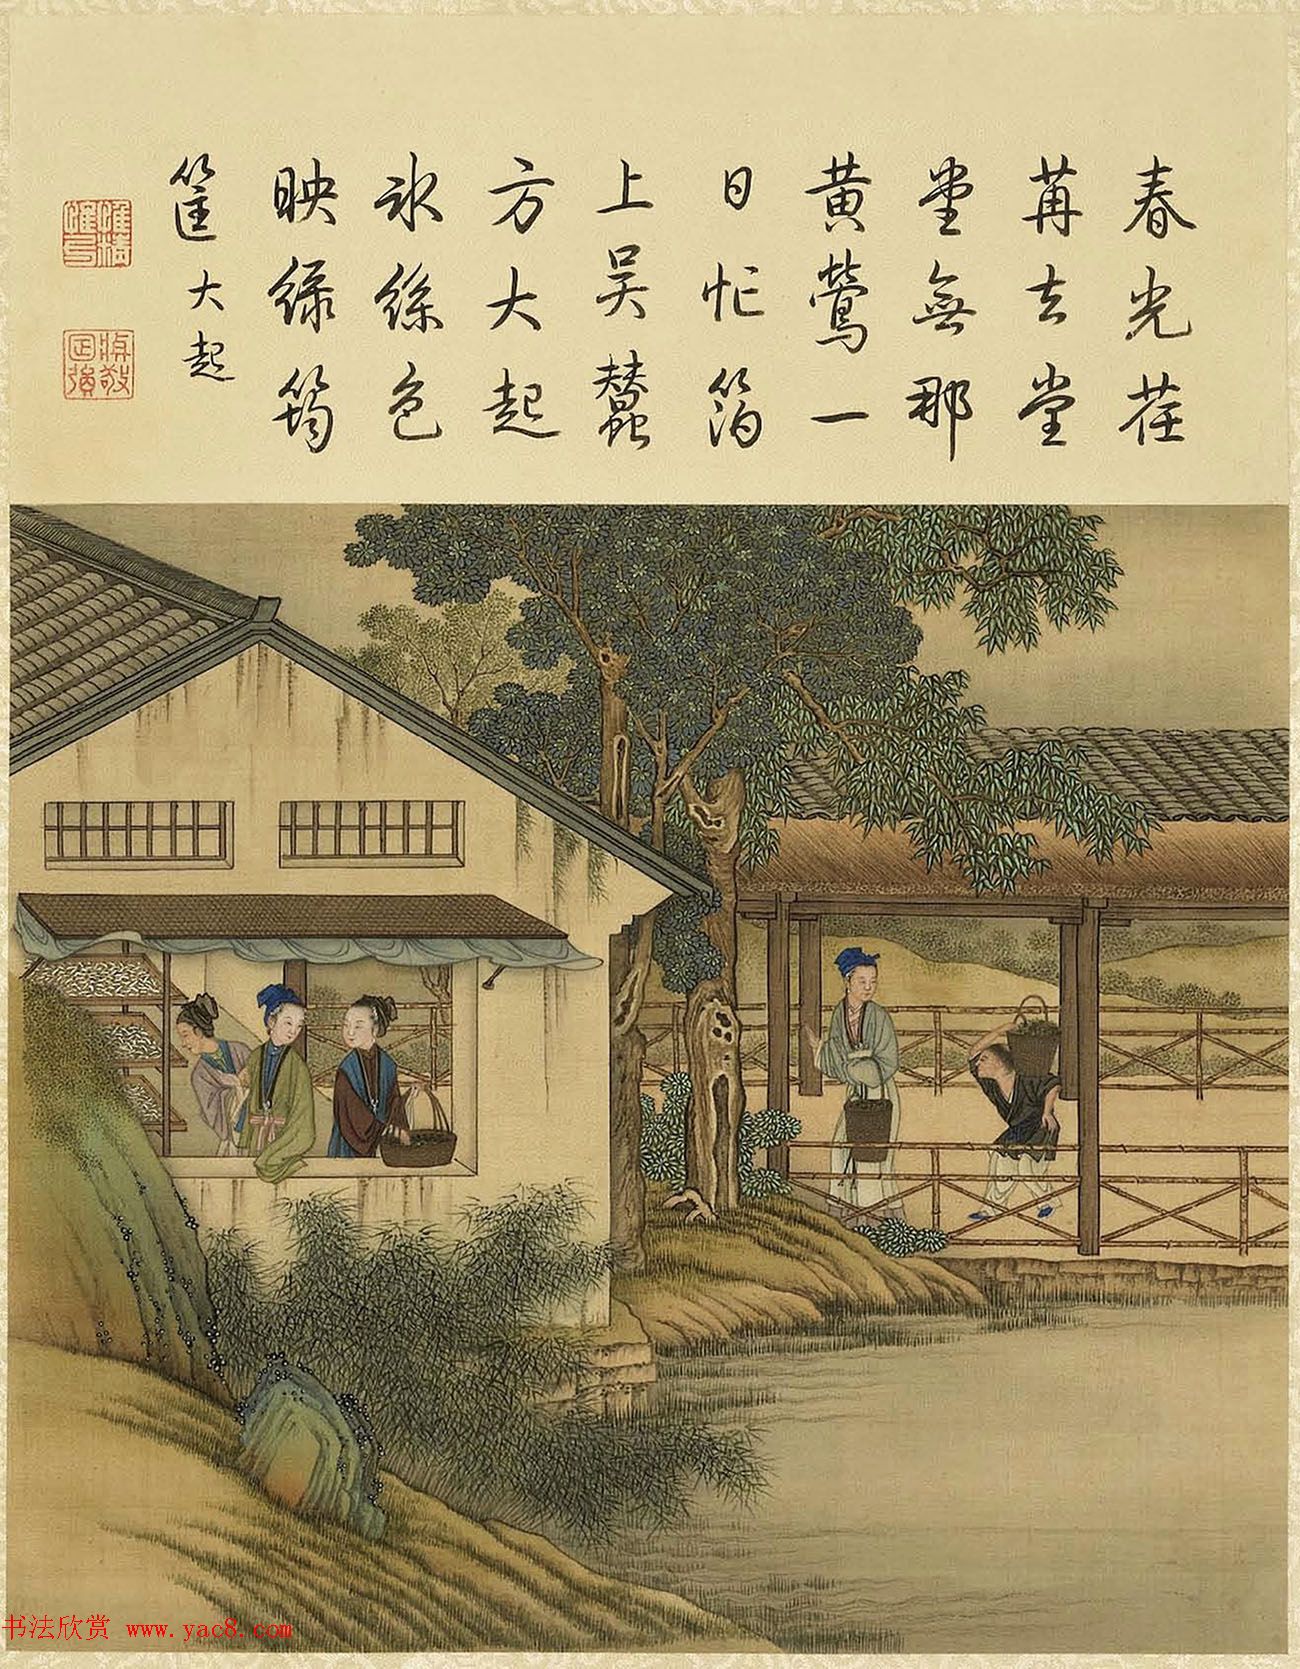 春光荏
苒去堂
堂無那
黄鶯一
日忙箔
上吴蠶
方大起
冰絲色
映緑筠
筐大起
书法欣赏 www.yac8.com